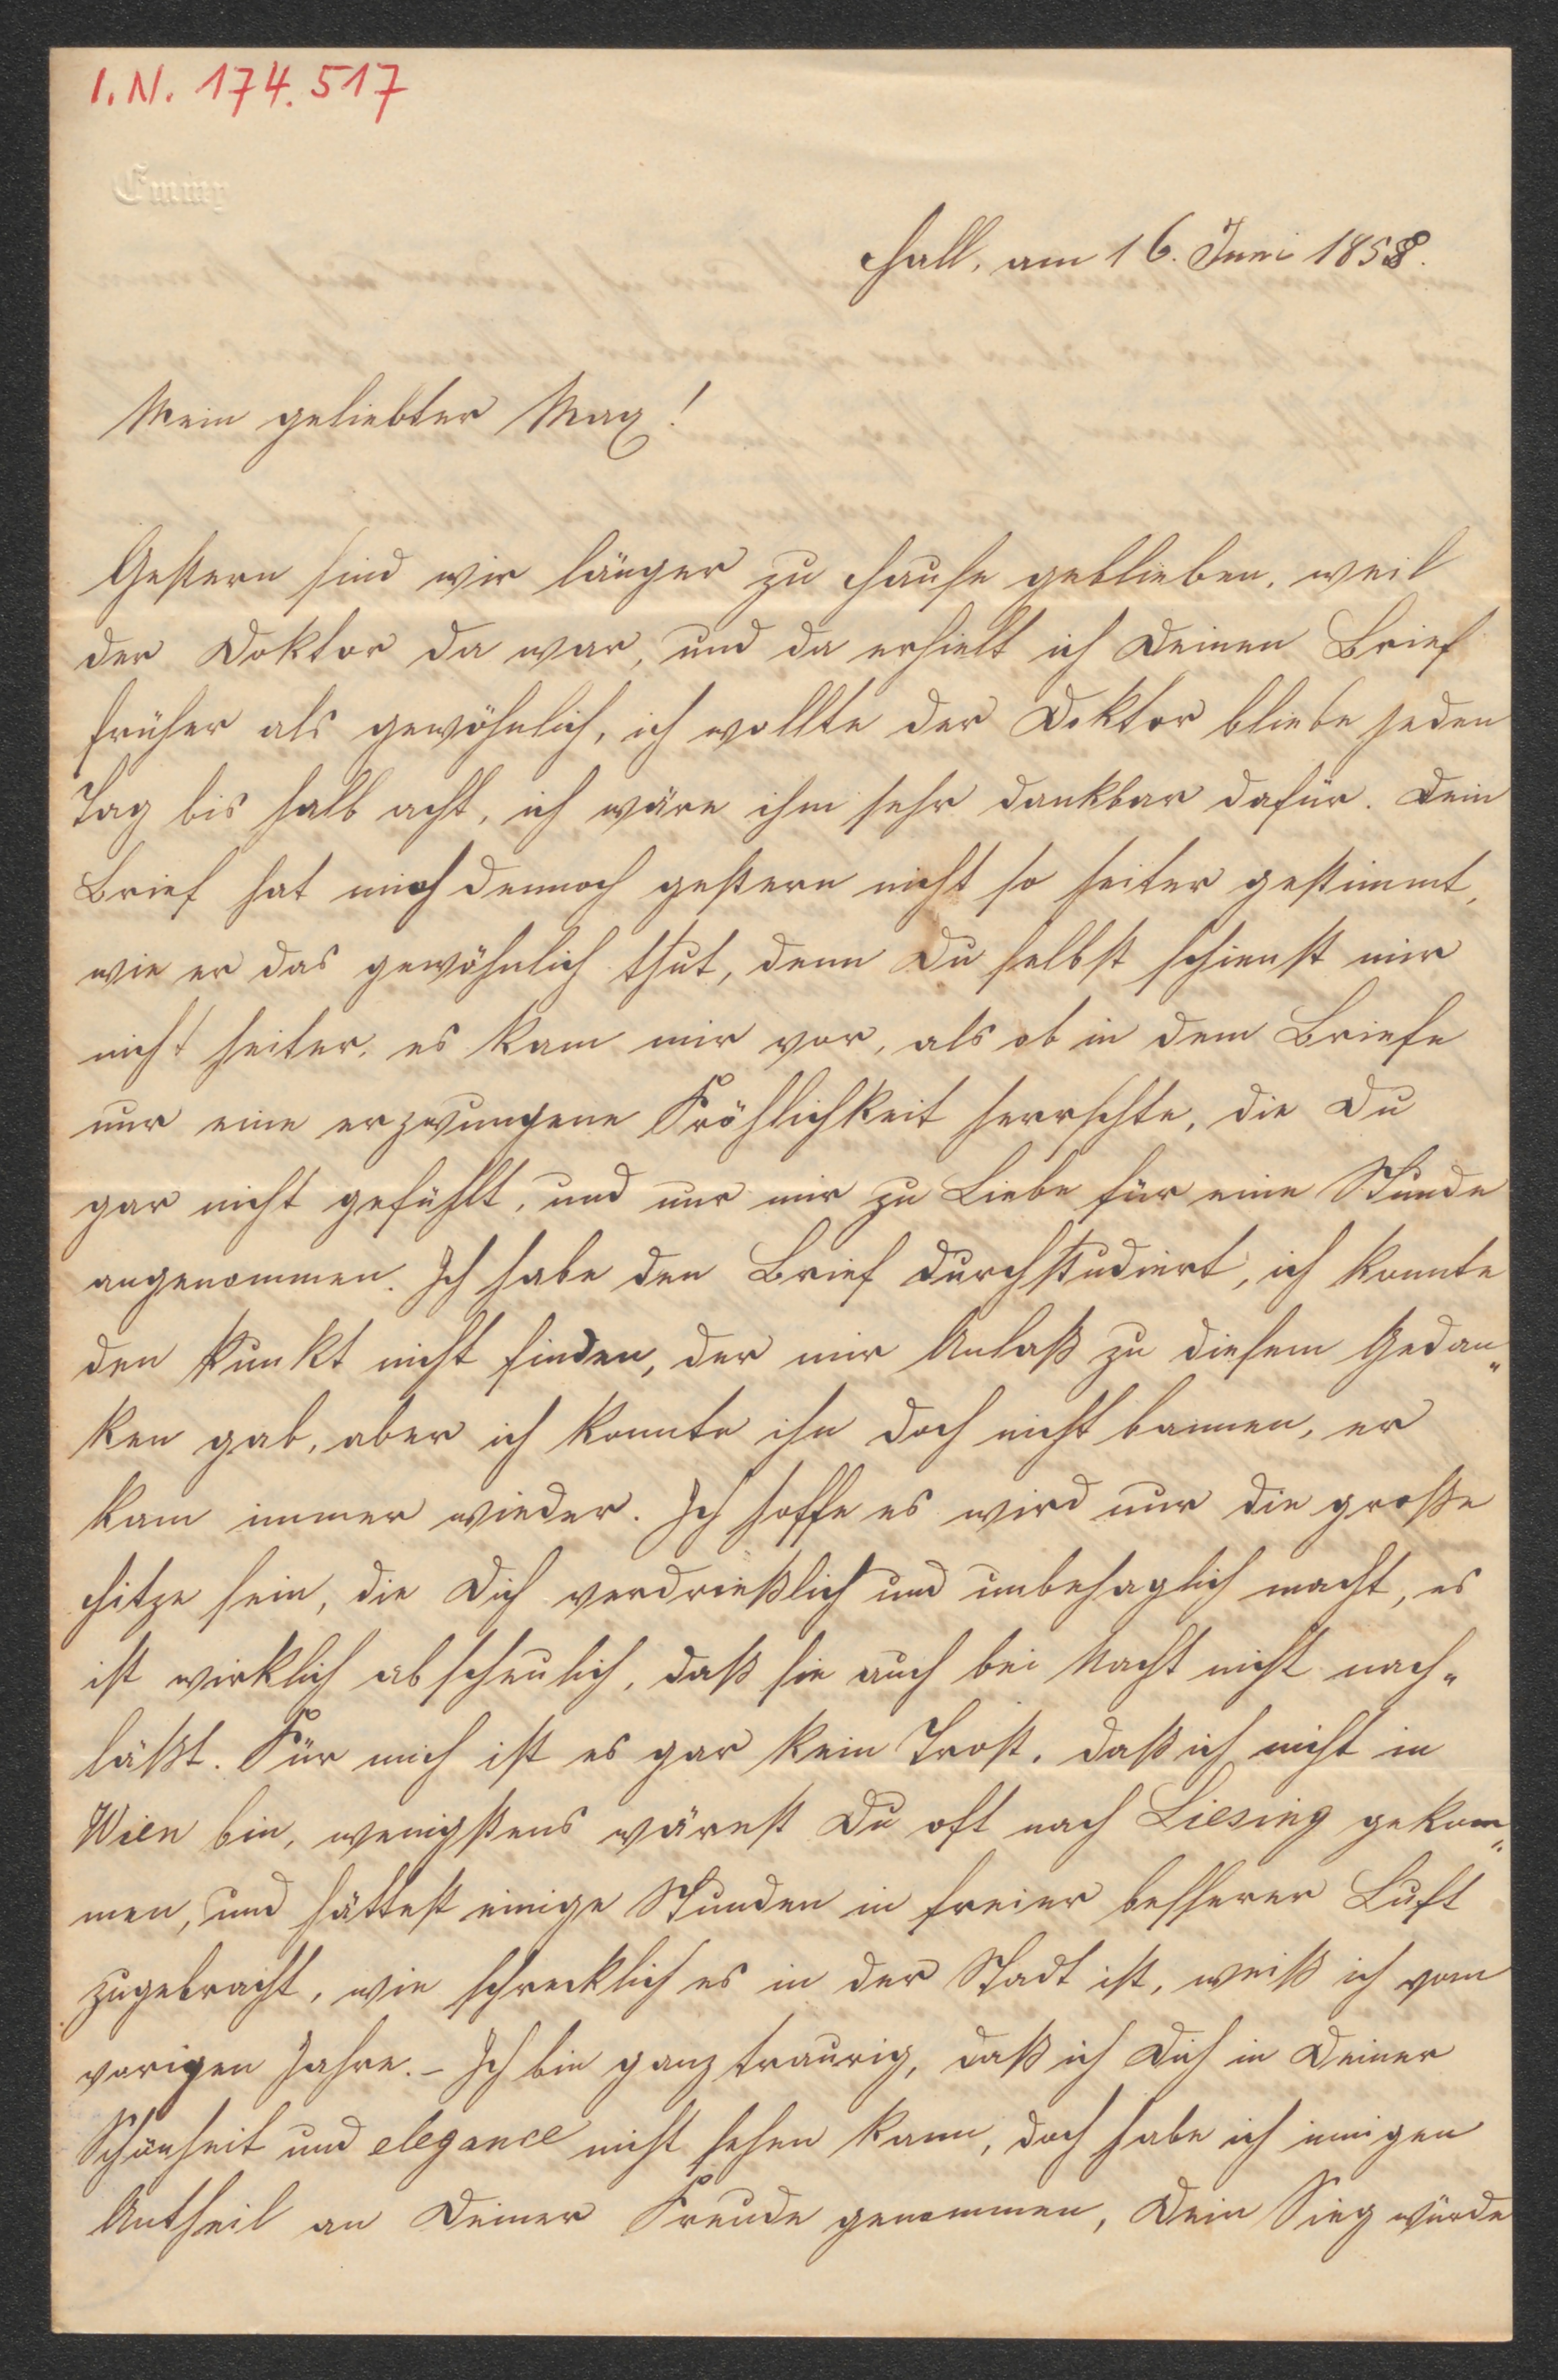 I.N. 174.517
Emmy
Hall, am 16. Juni 1858.
Mein geliebter Max!
Gestern sind wir länger zu Hause geblieben, weil
der Doktor da war, und da erhielt ich Deinen Brief
früher als gewöhnlich, ich wollte der Doktor bliebe jeden
Tag bis halb acht, ich wäre ihm sehr dankbar dafür. Dein
Brief hat mich dennoch gestern nicht so heiter gestimmt,
wie er das gewöhnlich thut, denn Du selbst schienst mir
nicht heiter, es kam mir vor, als ob in dem Briefe
nur eine erzwungene Fröhlichkeit herrschte, die Du
gar nicht gefühlt, und nur mir zu Liebe für eine Stunde
angenommen. Ich habe den Brief durchstudiert, ich konnte
den Punkt nicht finden, der mir Anlaß zu diesem Gedan„
ken gab, aber ich konnte ihn doch nicht bannen, er
kam immer wieder. Ich hoffe es wird nur die große
Hitze sein, die Dich verdrießlich und unbehaglich macht, es
ist wirklich abscheulich, daß sie auch bei Nacht nicht nach„
läßt. Für mich ist es gar kein Trost, daß ich nicht in
Wien bin, wenigstens wärest Du oft nach Liesing gekom„
men, und hättest einige Stunden in freier besserer Luft
zugebracht, wie schrecklich es in der Stadt ist, weiß ich vom
vorigen Jahre. – Ich bin ganz traurig, daß ich Dich in Deiner
Schönheit und elegance nicht sehen kann, doch habe ich innigen
Antheil an Deiner Freude genommen, Dein Sieg würde